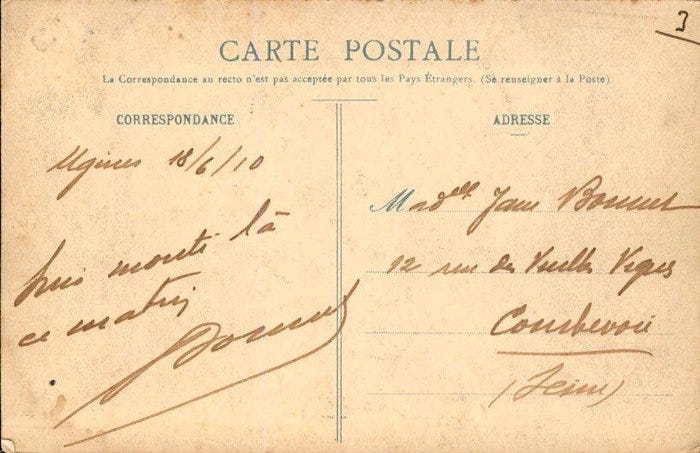 3
CARTE POSTALE
La Correspondance au recto n'est pas acceptée par tous les Pays Étrangers. (Se renseigner à la Poste)
CORRESPONDANCE
ADRESSE
Ugines 18/6/10
suis monté là
ce matin
Bonnet
Madelle Jane Bonnet
12 rue des Vieilles Vignes
Courbevoie
(Seine)